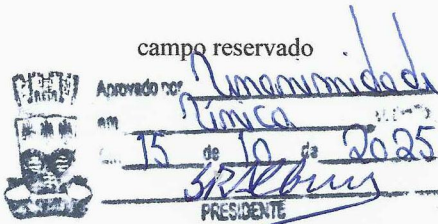 campo reservado
Aprovado por Unanimidade
em Única
15 de 10 da 2025
PRESIDENTE